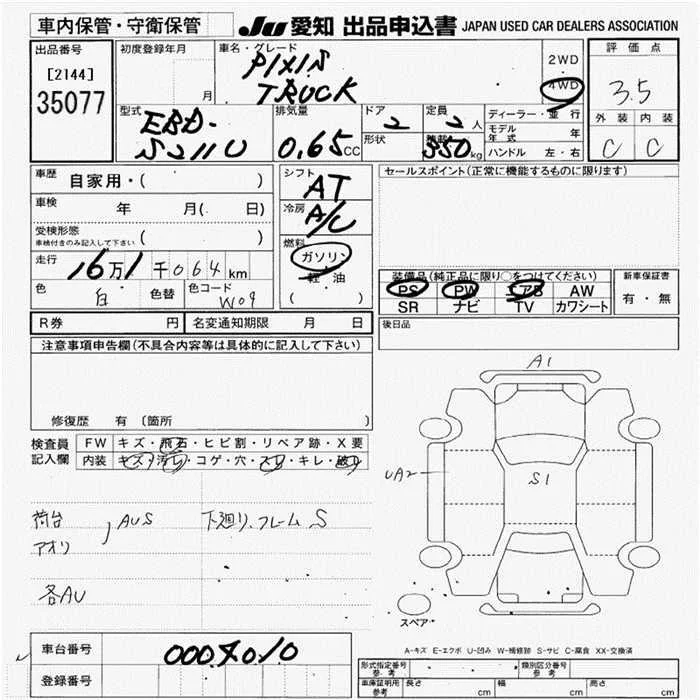 車内保管・守衛保管
JU 愛知 出品申込書 JAPAN USED CAR DEALERS ASSOCIATION
出品番号
[2144]
35077
初度登録年月
月
車名・グレード
PIXIS
TRUCK
2WD
4WD
評価点
3.5
外装 内装
C C
型式
EBD-
S211U
排気量
0.65CC
ドア
2
形状
定員
2人
積載
350kg
ディーラー・並行
モデル年式 年
ハンドル 左・右
車歴
自家用・( )
車検
年 月( 日)
受検形態
車検付きのみ記入して下さい ( )
走行
16万1千064km
色
白
色替
色コード
W09
シフト
AT
冷房
A/C
燃料
ガソリン
軽・油
( )
セールスポイント(正常に機能するものに限ります)
装備品(純正品に限り○をつけてください)
PS PW エアB AW
SR ナビ TV カワシート
新車保証書
有・無
R券 円
名変通知期限 月 日
後日品
注意事項申告欄(不具合内容等は具体的に記入して下さい)
修復歴 有 〔箇所
検査員
記入欄
FW キズ・飛石・ヒビ割・リペア跡・X要
内装 キズ・汚れ・コゲ・穴・スレ・キレ・破れ
荷台
アオリ
, AUS
下廻り、フレーム S
各AU
A1
UA2
S1
スペア
A-キズ E-エクボ U-凹み W-補修跡 S-サビ C-腐食 XX-交換済
車台番号
0007010
登録番号
形式指定番号
参考
類別区分番号
参考
車庫証明用
参考
長さ cm
幅 cm
高さ cm